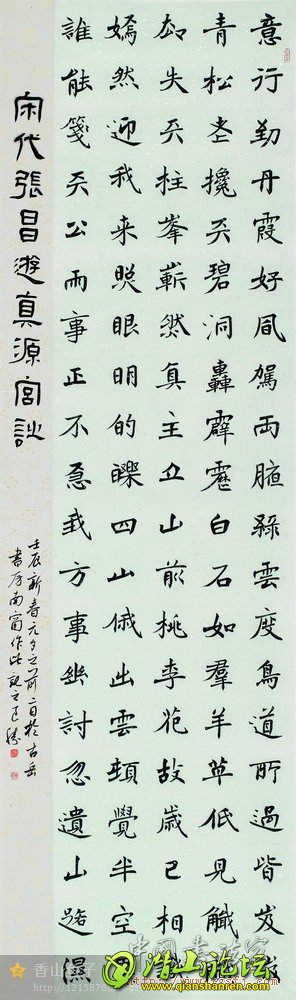 意行勤丹霞好風駕兩腋緣雲度鳥道所過皆岌
青松攙天碧洞轟霹靂白石如羣羊草低見觝
却失天柱峯嶄然真主立山前桃李花故歲已相
嫣然迎我来照眼明的皪四山俄出雲頓覺半空
誰能箋天公雨事正不急我方事幽討忽遺山路濕
宋代張昌遊真源宮詩
壬辰新春元夕之前二日於古岳
書房南窗作此記之
潜山论坛
www.qianshanren.com